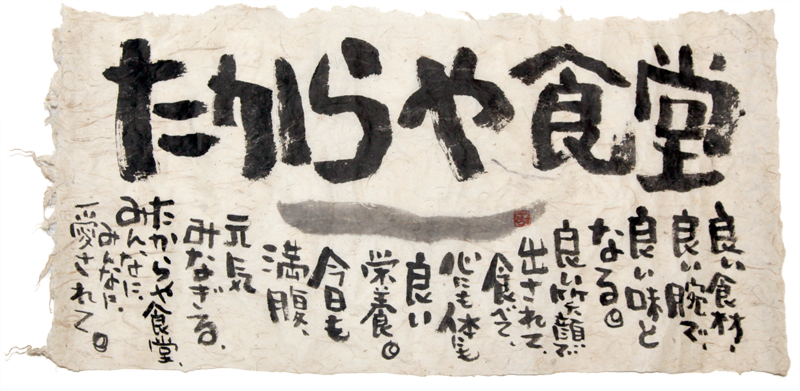 たからや食堂
良い食材、
良い腕で、
良い味と
なる。
良い笑顔で
出されて、
食べて、
心にも体にも
良い
栄養。
今日も
満腹、
元気
みなぎる、
たからや食堂、
みんなに、
みんなに、
愛されて。